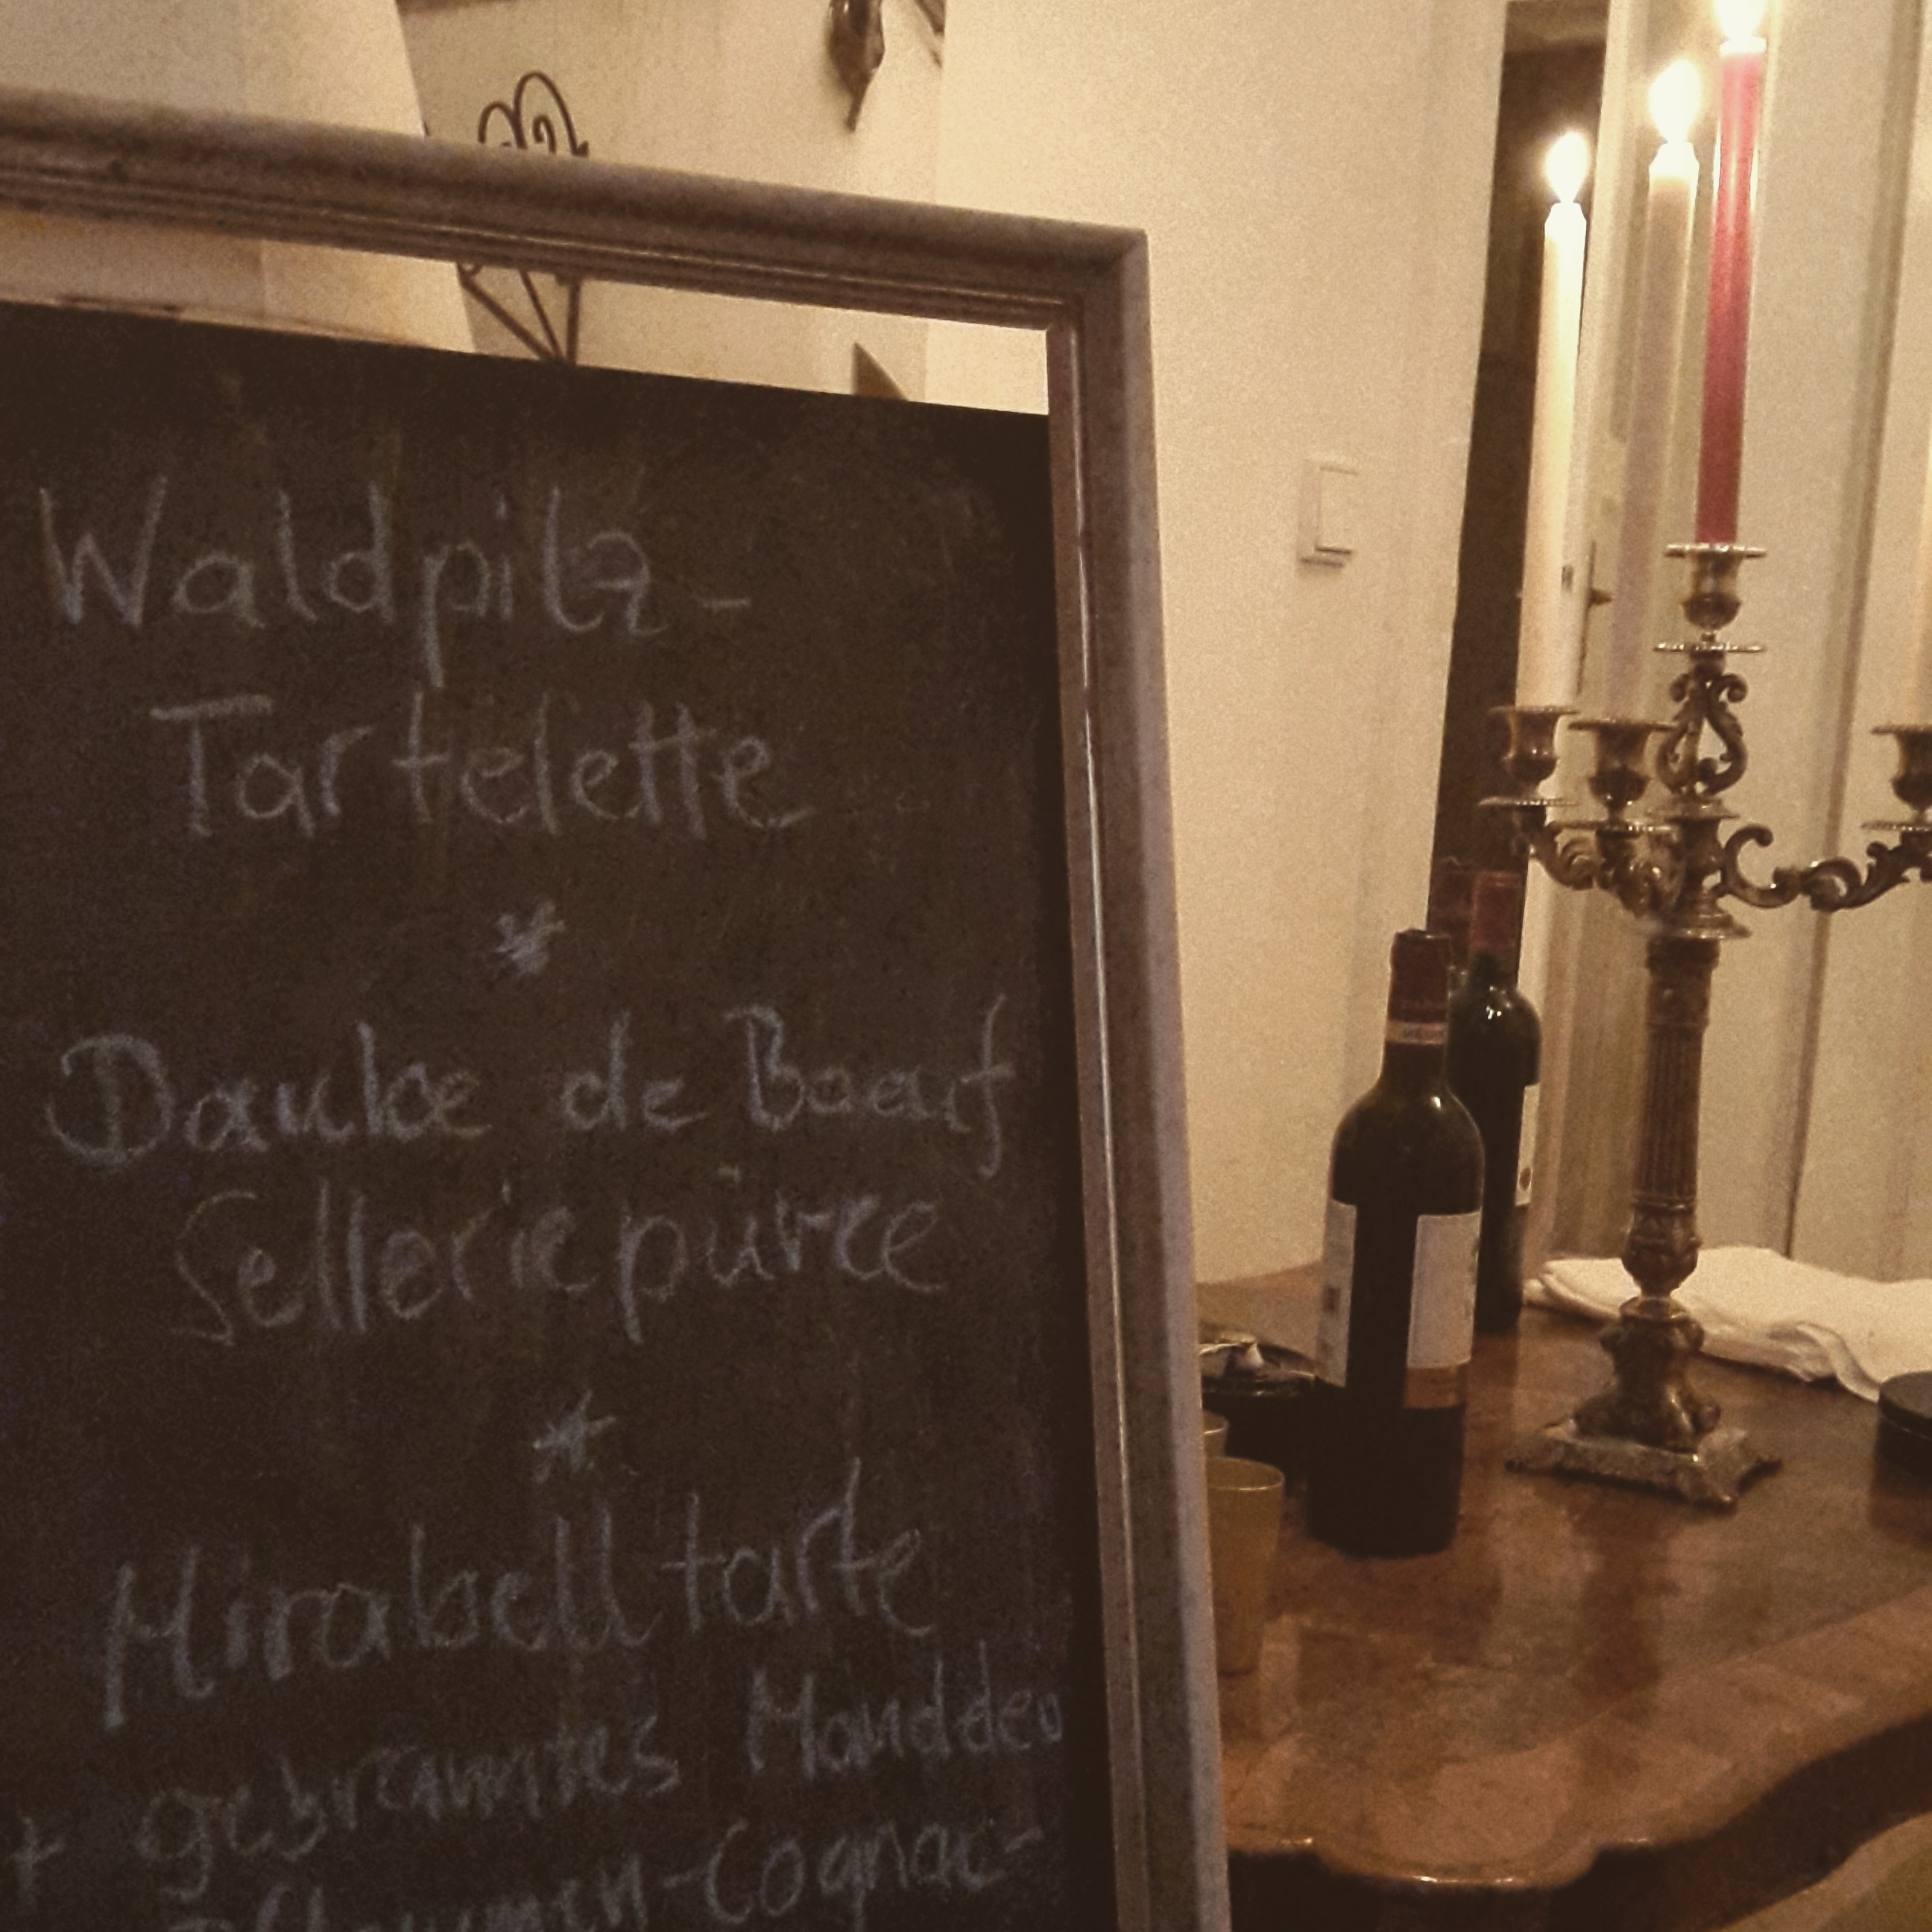 Waldpilz-
Tartelette
*
Daube de Boeuf
Selleriepüree
*
Mirabelltarte
+ gebranntes Mandel
Pflaumen-Cognac-